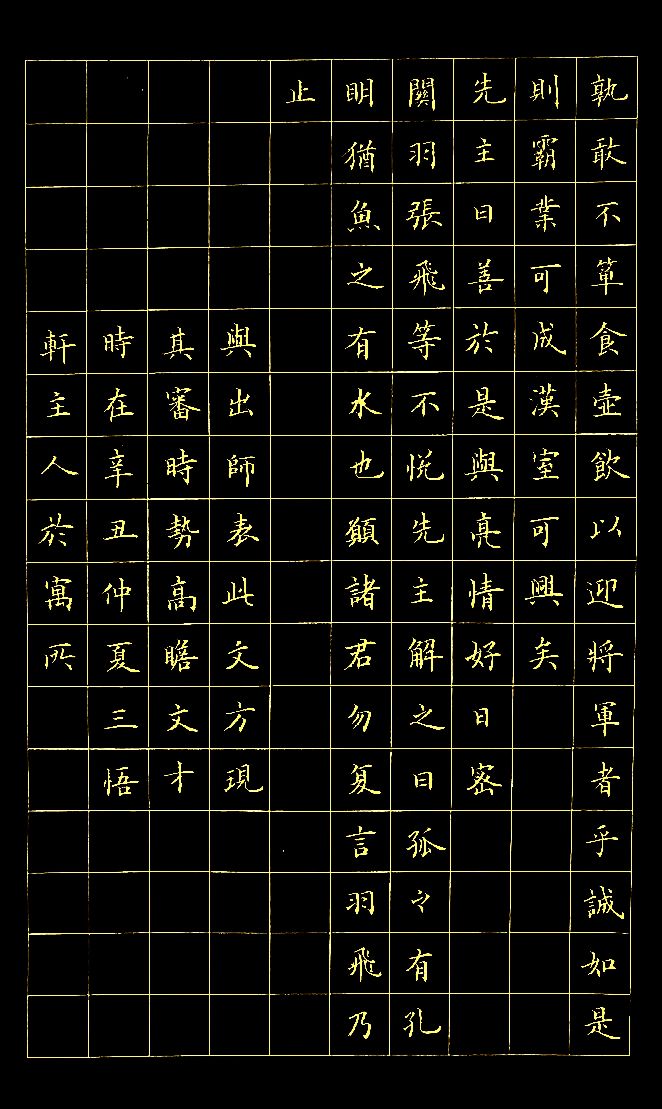 孰敢不簞食壺飲以迎將軍者乎誠如是
則霸業可成漢室可興矣
先主曰善於是與亮情好日密
關羽張飛等不悅先主解之曰孤々有孔
明猶魚之有水也願諸君勿复言羽飛乃
止
與出師表此文方現
其審時勢高瞻文才
時在辛丑仲夏三悟
軒主人於寓所